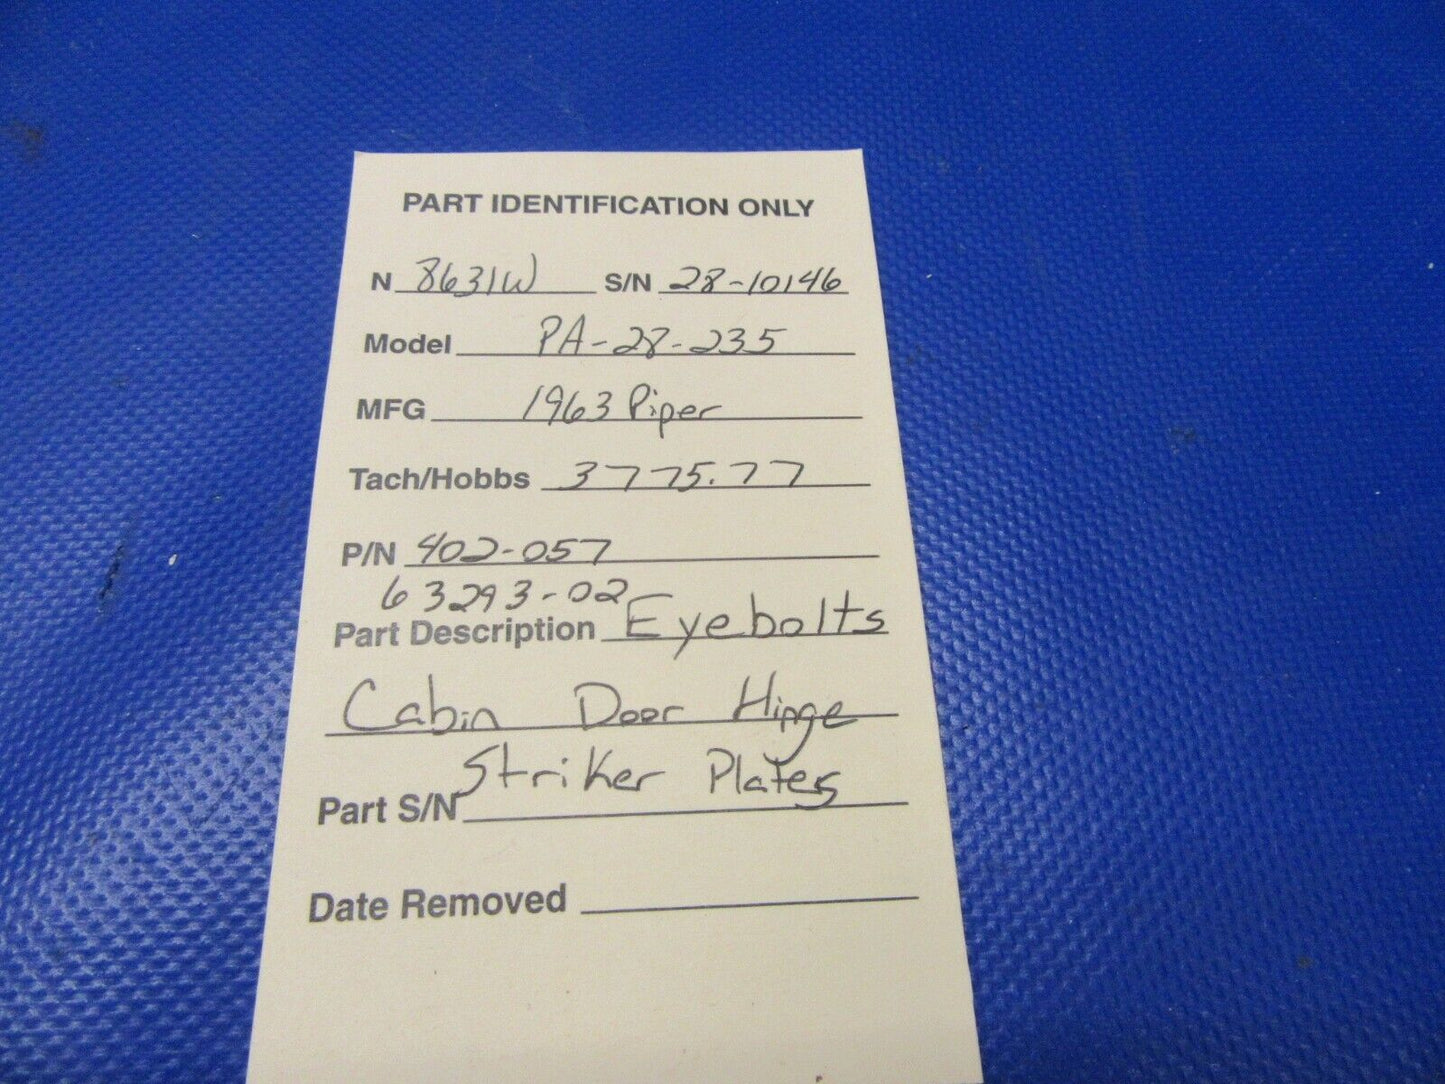 PART IDENTIFICATION ONLY
N 8631W S/N 28-10146
Model PA-28-235
MFG 1963 Piper
Tach/Hobbs 3775.77
P/N 402-057
63293-02
Part Description Eyebolts
Cabin Door Hinge
Striker Plates
Part S/N
Date Removed